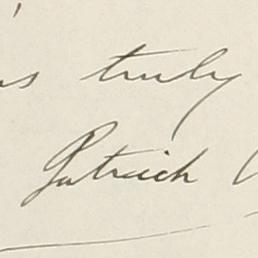 s truly
Patrick